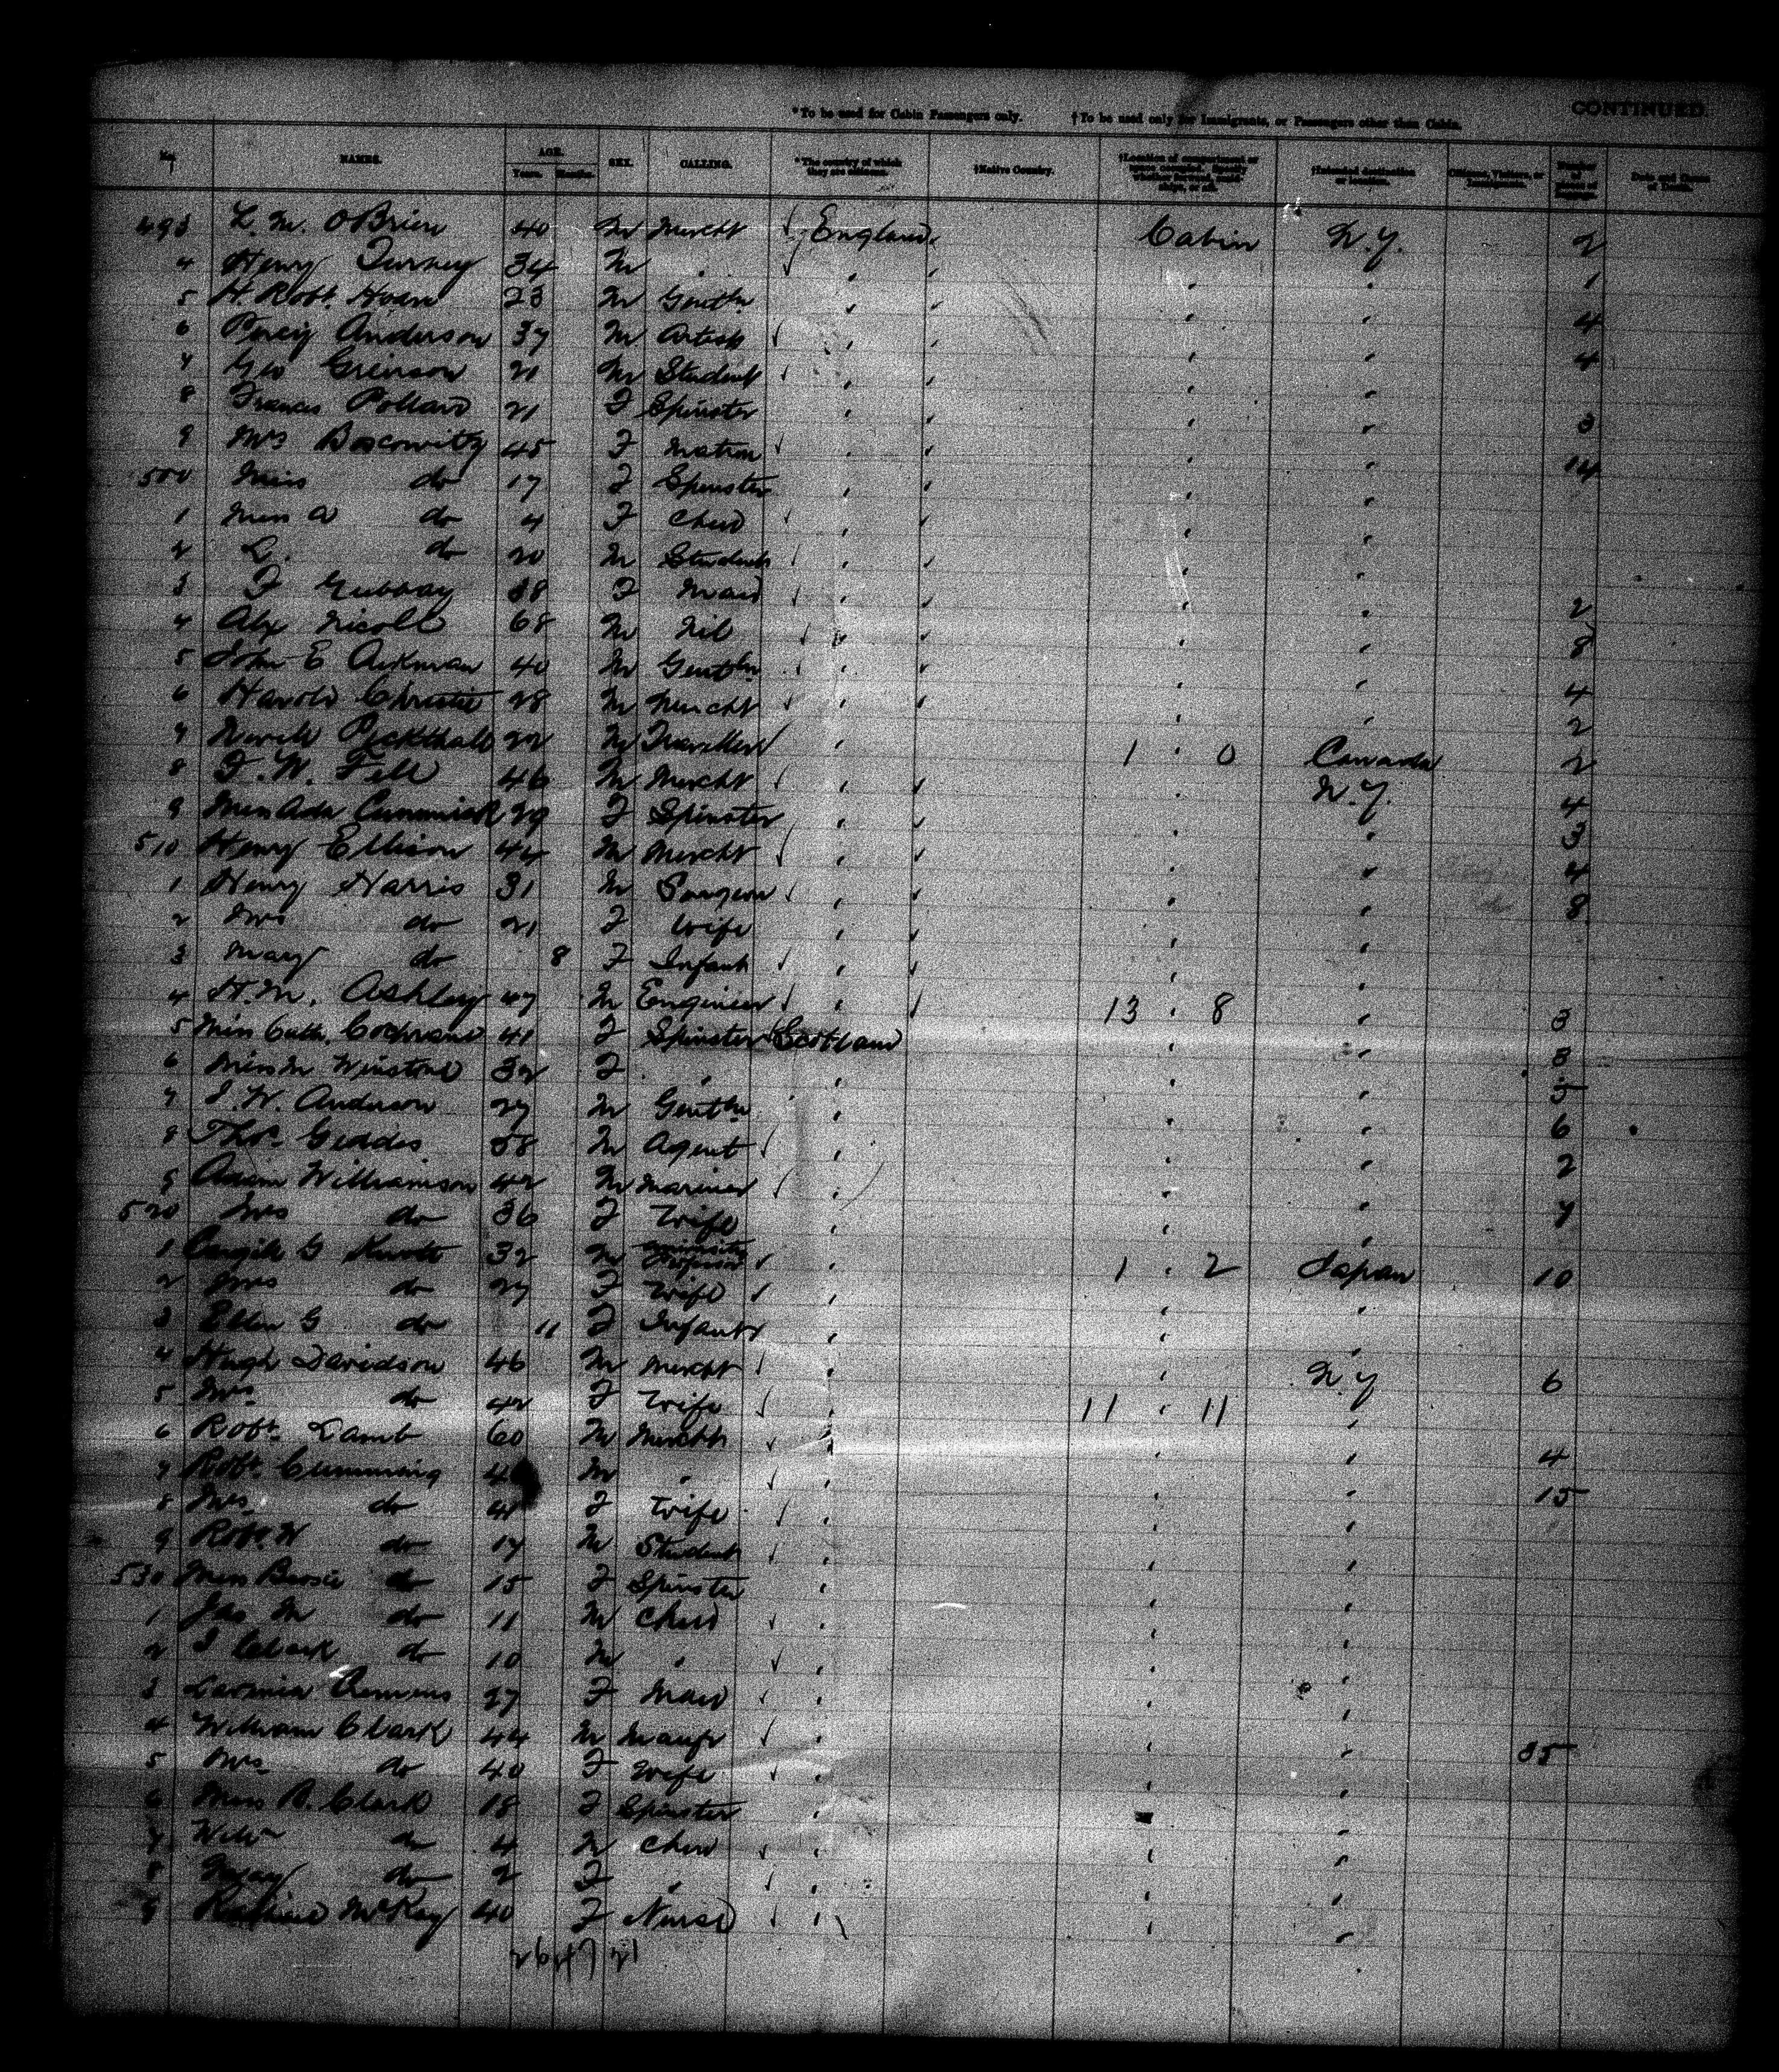 CONTINUED.
*To be used for Cabin Passengers only. †To be used only for Immigrants, or Passengers other than Cabin.
No. NAMES. AGE. Years. Months. SEX. CALLING. *The country of which they are citizens. †Native Country. †Location of compartment or †Intended destination or location. Number of Date and Cause of Death.
493 L. M. O'Brien 40 M Mercht England Cabin N.Y. 2
4 Henry 34 M " " " " 1
5 H. Robt. 23 M Gentln " " " 4
6 Percy Anderson 37 M Artist " " " 4
7 Geo 21 M Student " " "
8 Frances Pollard 21 F Spinster " " " 3
9 Mrs Boscowitz 45 F Matron " " " 14
500 Miss do 17 F Spinster " " "
1 Miss A do 4 F Child " " "
2 L. do 20 M Student " " "
3 F Gubbay 38 F Maid " " " 2
4 Alx Nicoll 68 M Nil " " " 8
5 John E Aikman 40 M Gentln " " " 4
6 Harold Christie 28 M Mercht " " " 2
7 Pickthall 22 M Traveller " 1 " 0 Canada 2
8 F. W. Fell 46 M Mercht " " N.Y. 4
9 Miss Ada 29 F Spinster " " " 3
510 Henry Ellison 44 M Mercht " " " 4
1 Henry Harris 31 M Surgeon " " " 8
2 Mrs do 21 F Wife " " "
3 Mary do 8 F Infant " " "
4 H. M. Ashley 47 M Engineer " 13 " 8 " 3
5 Miss Cath. Cochrane 41 F Spinster Scotland " " 3
6 Miss M 32 F " " " " 5
7 J. W. Anderson 27 M Gentln " " " 6
8 Thos. Geddes 58 M Agent " " " 2
9 Adam Williamson 42 M Mariner " " " 7
520 Mrs do 36 F Wife " " "
1 Cargill G Knott 32 M University Professor " 1 " 2 Japan 10
2 Mrs do 27 F Wife " " "
3 Ellen G do 11 F Infant " " "
4 Hugh Davidson 46 M Mercht " " N.Y 6
5 Mrs do 42 F Wife " 11 " 11 "
6 Robt. Lamb 60 M Mercht " " " 4
7 Robt. Cumming M " " " " 15
8 Mrs do F Wife " " "
9 Robt. W do 17 M Student " " "
530 Miss Bessie do 15 F Spinster " " "
1 Jas M do 11 M Child " " "
2 J Clark do 10 M " " " "
3 Lavinia Clemens 27 F Maid " " "
4 William Clark 44 M Manfr " " " 35
5 Mrs do 40 F Wife " " "
6 Miss R. Clark 18 F Spinster " " "
7 Willm do 4 M Child " " "
8 May do 2 F " " " "
9 McKay 40 F Nurse " " "